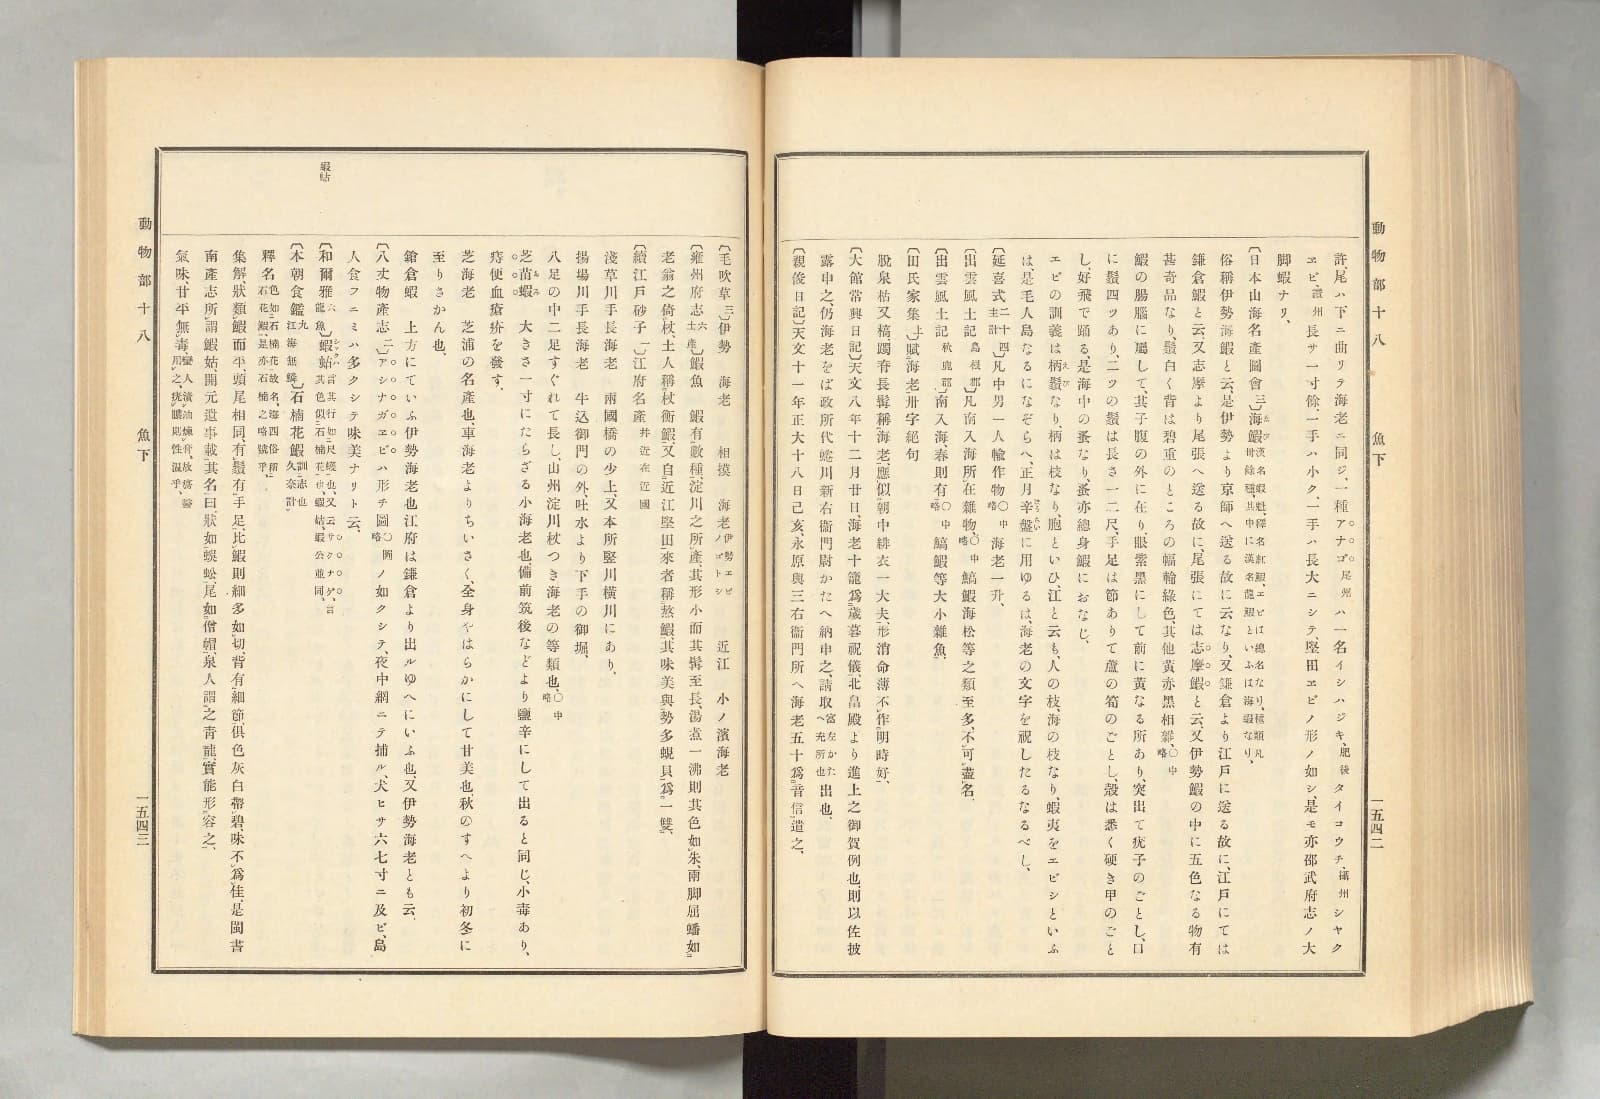 動物部十八 魚下 一五四二
許、尾ハ下ニ曲リテ海老ニ同ジ、一種アナゴ尾州ハ一名イシハジキ、肥後タイコウチ、攝州シヤク
ヱビ、讃州長サ一寸餘、一手ハ小ク、一手ハ長大ニシテ、堅田ヱビノ形ノ如シ、是モ亦邵武府志ノ大
脚蝦ナリ、
〔日本山海名產圖會三〕海鰕
俗稱伊勢海鰕と云、是伊勢より京師へ送る故に云なり、又鎌倉より江戸に送る故に、江戸にては
鎌倉鰕と云、又志摩より尾張へ送る故に、尾張にては志摩鰕と云、又伊勢鰕の中に五色なる物有
甚奇品なり、鬚白く背は碧重のところの幅輪綠色、其他黃赤黑相雜、〇中略
鰕の腸腦に屬して、其子腹の外に在り、眼紫黑にして前に黃なる所あり、突出て疣子のごとし、口
に鬚四ツあり、二ツの鬚は長さ一二尺、手足は節ありて蘆の筍のごとし、殼は悉く硬き甲のごと
し、好飛で踊る、是海中の蚤なり、蚤亦總身鰕におなじ、
エビの訓義は柄鬚なり、柄は枝なり、胞といひ、江と云も、人の枝、海の枝なり、蝦夷をエビシといふ
は、是毛人島なるになぞらへ、正月辛盤に用ゆるは、海老の文字を祝したるなるべし、
〔延喜式二十四主計〕凡中男一人輸作物〇中略海老一升、
〔出雲風土記島根郡〕凡南入海所在雜物、〇中略鯿鰕海松等之類至多、不可盡名、
〔出雲風土記秋鹿郡〕南入海、春則有〇中略鯿鰕等大小雜魚、
〔田氏家集上〕賦海老卅字絕句
脫泉枯又槁、躅脊長髯稱海老、應似朝中緋衣一大夫、形消命薄不作明時好、
〔大館常興日記〕天文八年十二月廿日、海老十籠爲歲暮祝儀、北畠殿より進上之御賀例也、則以佐披
露申之、仍海老をば政所代蜷川新右衞門尉かたへ納申之、請取富左かたへ充所也出也、
〔親俊日記〕天文十一年正大十八日己亥、永原與三右衞門所へ海老五十爲音信遣之、
〔毛吹草三〕伊勢 海老 相摸 海老伊勢エビノゴトシ 近江 小ノ濱海老
〔雍州府志六土產〕鰕魚 鰕有數種、淀川之所產、其形小而其髯至長、湯煮一沸則其色如朱、兩脚屈蟠如
老翁之倚杖、土人稱杖衝鰕、又自近江堅田來者稱熬鰕、其味美與勢多蜆貝爲一雙、
〔續江戶砂子一〕江府名產幷近在近國
淺草川手長海老 兩國橋の少上、又本所竪川橫川にあり、
揚場川手長海老 牛込御門の外、吐水より下手の御堀、
八足の中二足すぐれて長し、山州淀川杖つき海老の等類也、〇中略
芝苗蝦 大きさ一寸にたらざる小海老也、備前筑後などより鹽辛にして出ると同じ、小毒あり、
痔便血瘡疥を發す、
芝海老 芝浦の名產也、車海老よりちいさく、全身やはらかにして甘美也、秋のすへより初冬に
至りさかん也、
鎗倉蝦 上方にていふ伊勢海老也、江府は鎌倉より出ルゆへにいふ也、又伊勢海老とも云、
〔八丈物產志二〕アシナガヱビハ形チ圖〇圖略ノ如クシテ、夜中網ニテ捕ル、大ヒサ六七寸ニ及ビ、島
人食フニミハ多クシテ味美ナリト云、
蝦蛄
〔和爾雅六龍魚〕蝦蛄
〔本朝食鑑九江海無鱗〕石楠花鰕訓志也久奈計
釋名石花鰕
集解、狀類鰕而平、頭尾相同、有鬚有手足、比鰕則細多如切、背有細節、俱色灰白帶碧、味不爲佳、是閩書
南產志所謂鰕姑、開元遺事載其名曰、狀如蜈蚣、尾如僧帽、泉人謂之靑龍、實能形容之、
氣味、甘平無毒
動物部十八 魚下 一五四三